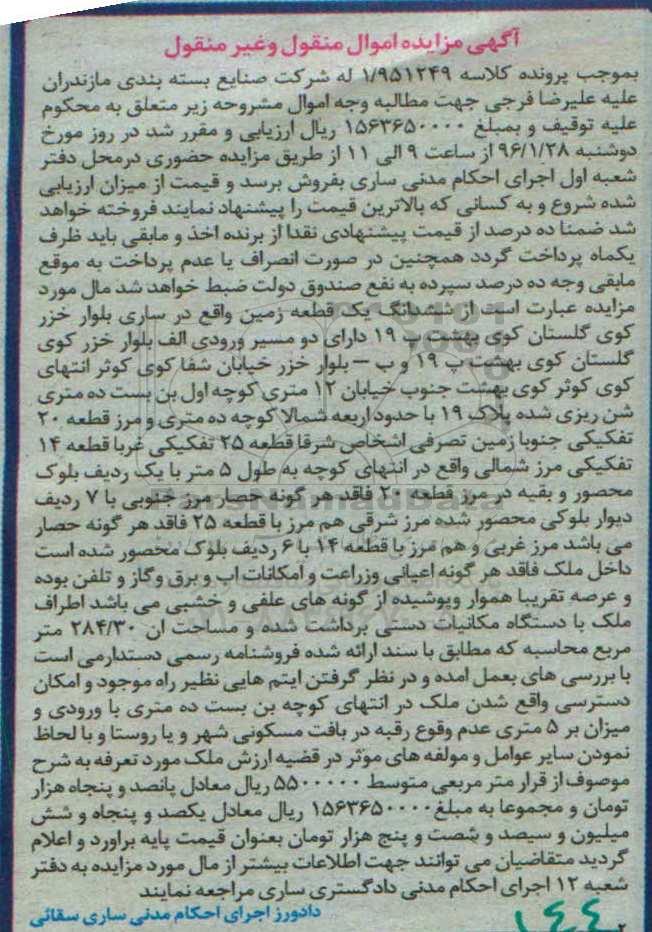 آگهی مزایده اموال منقول وغیر منقول
بموجب پرونده کلاسه ۱/۹۵۱۲۴۹ له شرکت صنایع بسته بندی مازندران
علیه علیرضا فرجی جهت مطالبه وجه اموال مشروحه زیر متعلق به محکوم
علیه توقیف و بمبلغ ۱۵۶۳۶۵۰۰۰۰ ریال ارزیابی و مقرر شد در روز مورخ
دوشنبه ۹۶/۱/۲۸ از ساعت ۹ الی ۱۱ از طریق مزایده حضوری درمحل دفتر
شعبه اول اجرای احکام مدنی ساری بفروش برسد و قیمت از میزان ارزیابی
شده شروع و به کسانی که بالاترین قیمت را پیشنهاد نمایند فروخته خواهد
شد ضمنا ده درصد از قیمت پیشنهادی نقدا از برنده اخذ و مابقی باید ظرف
یکماه پرداخت گردد همچنین در صورت انصراف یا عدم پرداخت به موقع
مابقی وجه ده درصد سپرده به نفع صندوق دولت ضبط خواهد شد مال مورد
مزایده عبارت است از ششدانگ یک قطعه زمین واقع در ساری بلوار خزر
کوی گلستان کوی بهشت پ ۱۹ دارای دو مسیر ورودی الف بلوار خزر کوی
گلستان کوی بهشت پ ۱۹ و ب – بلوار خزر خیابان شفا کوی کوثر انتهای
کوی کوثر کوی بهشت جنوب خیابان ۱۲ متری کوچه اول بن بست ده متری
شن ریزی شده پلاک ۱۹ با حدود اربعه شمالا کوچه ده متری و مرز قطعه ۲۰
تفکیکی جنوبا زمین تصرفی اشخاص شرقا قطعه ۲۵ تفکیکی غربا قطعه ۱۴
تفکیکی مرز شمالی واقع در انتهای کوچه به طول ۵ متر با یک ردیف بلوک
محصور و بقیه در مرز قطعه ۲۰ فاقد هر گونه حصار مرز جنوبی با ۷ ردیف
دیوار بلوکی محصور شده مرز شرقی هم مرز با قطعه ۲۵ فاقد هر گونه حصار
می باشد مرز غربی و هم مرز با قطعه ۱۴ با ۶ ردیف بلوک محصور شده است
داخل ملک فاقد هر گونه اعیانی وزراعت و امکانات اب و برق وگاز و تلفن بوده
و عرصه تقریبا هموار وپوشیده از گونه های علفی و خشبی می باشد اطراف
ملک با دستگاه مکانیات دستی برداشت شده و مساحت ان ۲۸۴/۳۰ متر
مربع محاسبه که مطابق با سند ارائه شده فروشنامه رسمی دستدارمی است
با بررسی های بعمل امده و در نظر گرفتن ایتم هایی نظیر راه موجود و امکان
دسترسی واقع شدن ملک در انتهای کوچه بن بست ده متری با ورودی و
میزان بر ۵ متری عدم وقوع رقبه در بافت مسکونی شهر و یا روستا و با لحاظ
نمودن سایر عوامل و مولفه های موثر در قضیه ارزش ملک مورد تعرفه به شرح
موصوف از قرار متر مربعی متوسط ۵۵۰۰۰۰۰ ریال معادل پانصد و پنجاه هزار
تومان و مجموعا به مبلغ ۱۵۶۳۶۵۰۰۰۰ ریال معادل یکصد و پنجاه و شش
میلیون و سیصد و شصت و پنج هزار تومان بعنوان قیمت پایه براورد و اعلام
گردید متقاضیان می توانند جهت اطلاعات بیشتر از مال مورد مزایده به دفتر
شعبه ۱۲ اجرای احکام مدنی دادگستری ساری مراجعه نمایند
دادورز اجرای احکام مدنی ساری سقائی
۲
۱۴۴